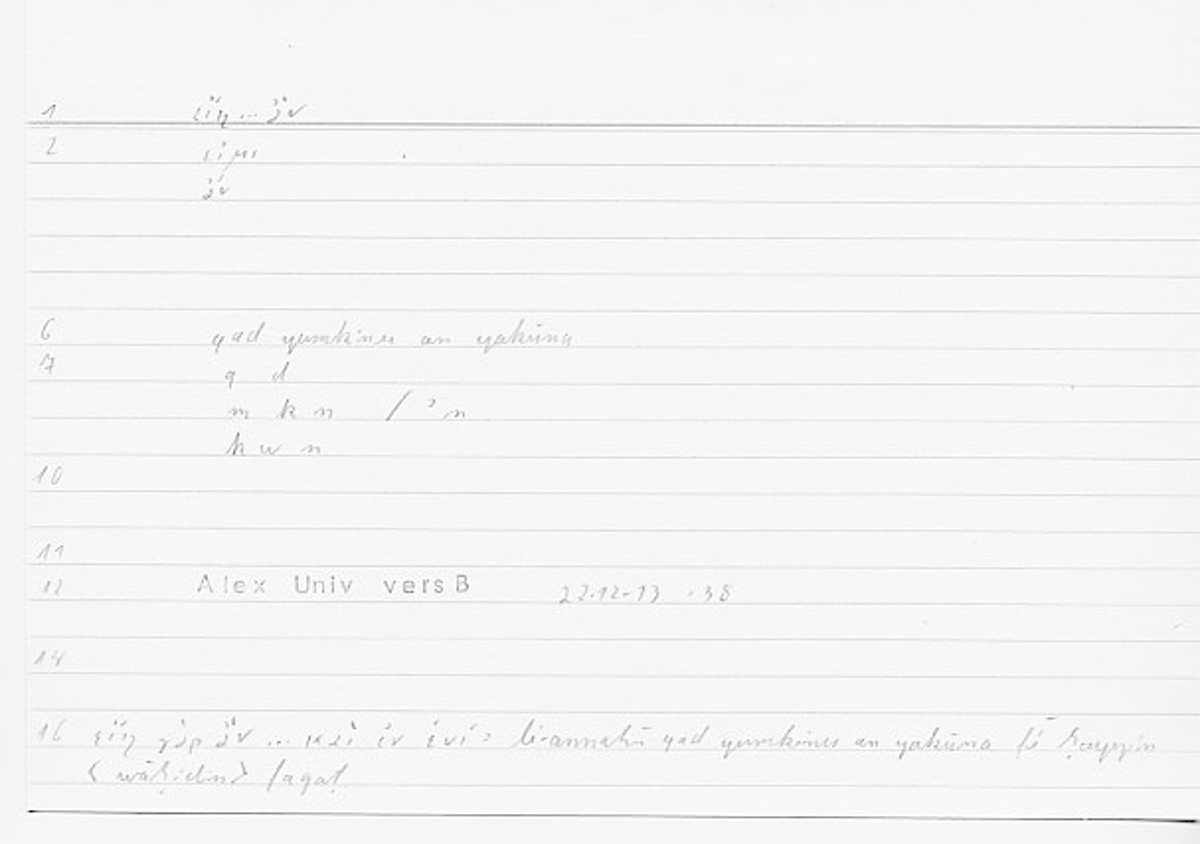 1 εἴη ... ἄν
2 εἰμι
ἄν
6 qad yumkinu an yakūna
7 q d
m k n / ʾn
k w n
10
11
12 Alex Univ vers B 22.12-13 -38
14
16 εἴη γὰρ ἄν ... καὶ ἐν ἑνί: li-annahū qad yumkinu an yakūna fī ḥayyin
< wāḥidin> faqaṭ